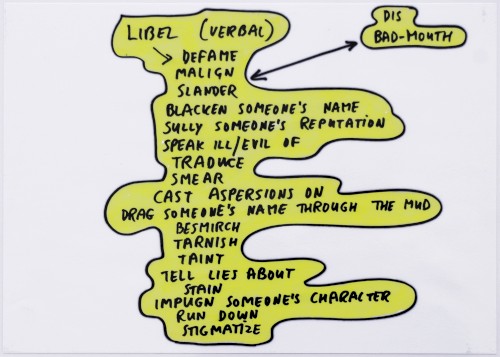 LIBEL (VERBAL)
DEFAME
MALIGN
SLANDER
BLACKEN SOMEONE'S NAME
SULLY SOMEONE'S REPUTATION
SPEAK ILL/EVIL OF
TRADUCE
SMEAR
CAST ASPERSIONS ON
DRAG SOMEONE'S NAME THROUGH THE MUD
BESMIRCH
TARNISH
TAINT
TELL LIES ABOUT
STAIN
IMPUGN SOMEONE'S CHARACTER
RUN DOWN
STIGMATIZE
DIS
BAD-MOUTH